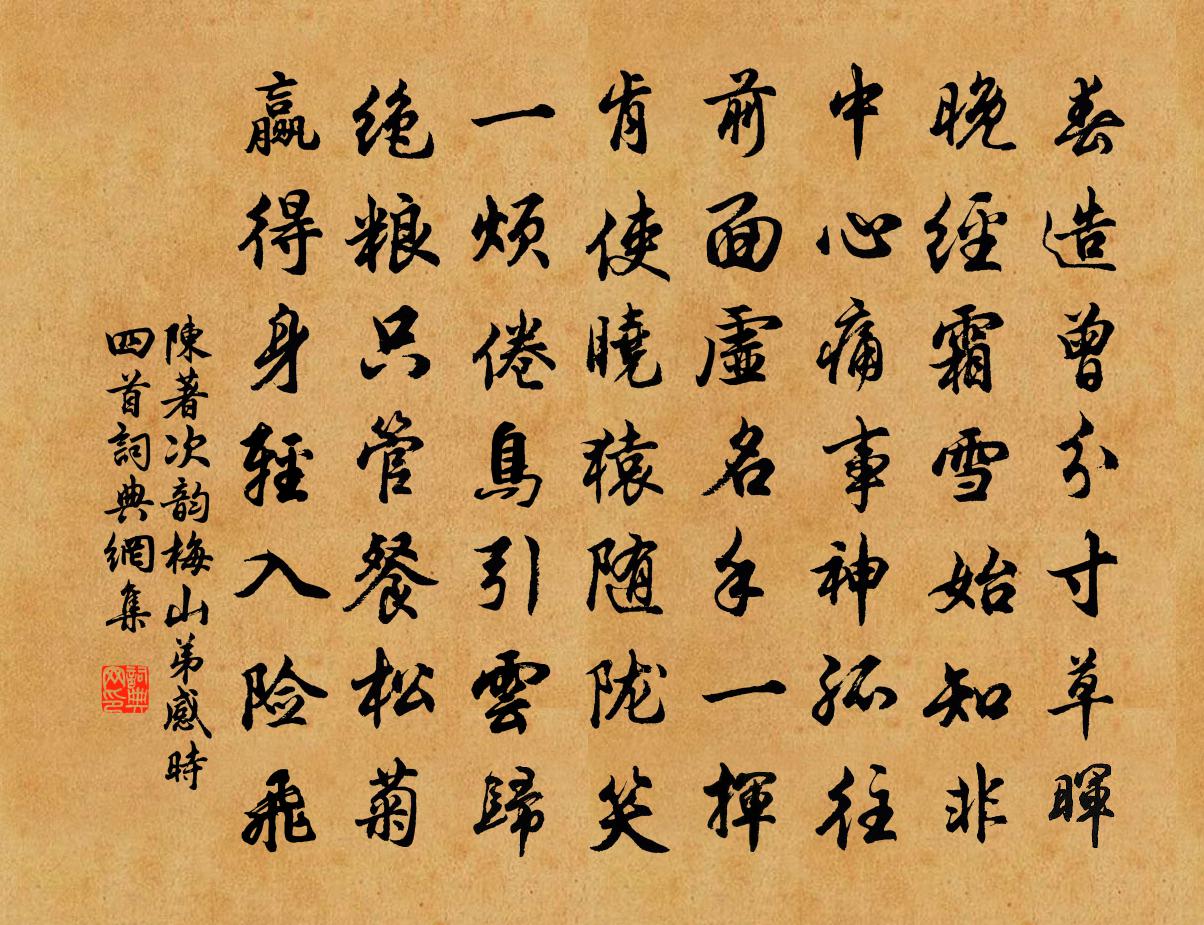 春造曾分寸草暉
晚經霜雪始知非
中心痛事神孤往
前面虛名手一揮
肯使曉猿随陇笑
一烦倦鳥引雲歸
绝粮只管餐松菊
贏得身輕入险飛
陳著次韵梅山弟感時
四首詞典網集
詞典网印